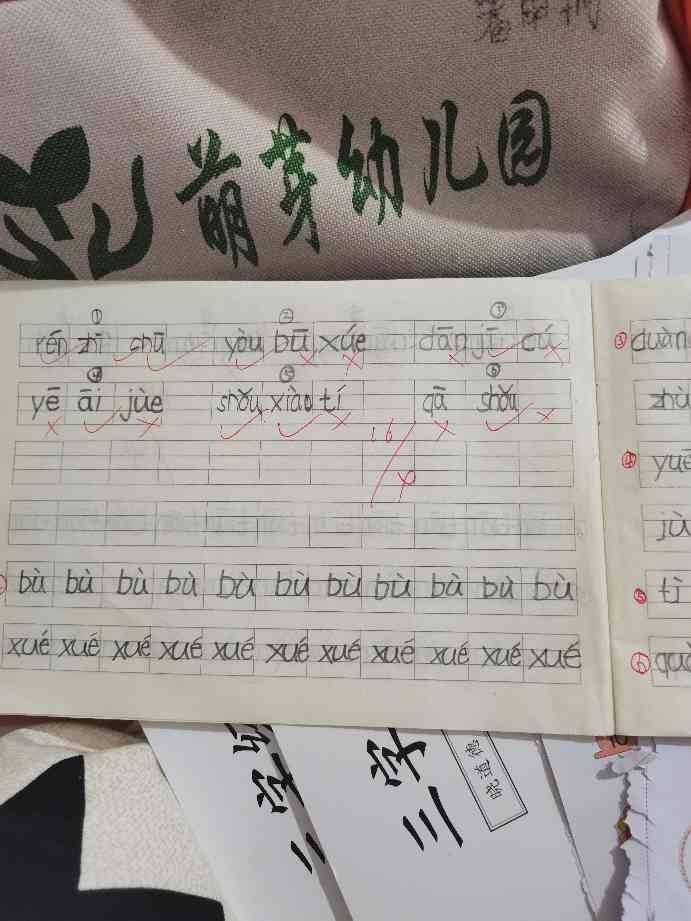 萌芽幼儿园
① ② ③
rén zhī chū yòu bū xúe dān jī cú
④ ⑤ ⑥
yē āi jùe shǒu xiào tí qā shǒu
16
bù bù bù bù bù bù bù bù bù bù bù
xué xué xué xué xué xué xué xué xué xué xué
③ duàn
zhù
④ yuē
jù
⑤ tì
⑥ què
三字
三字
晓道德